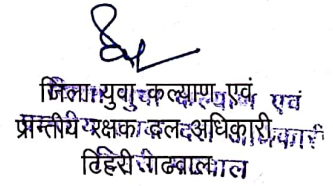 जिला युवा कल्याण एवं
प्रान्तीय रक्षक दल अधिकारी
टिहरी गढवाल